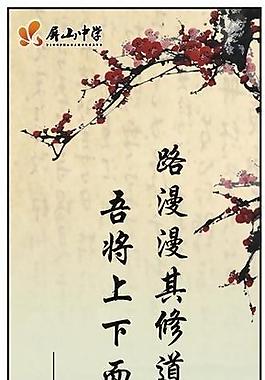 屏山中学
路漫漫其修道
吾将上下而